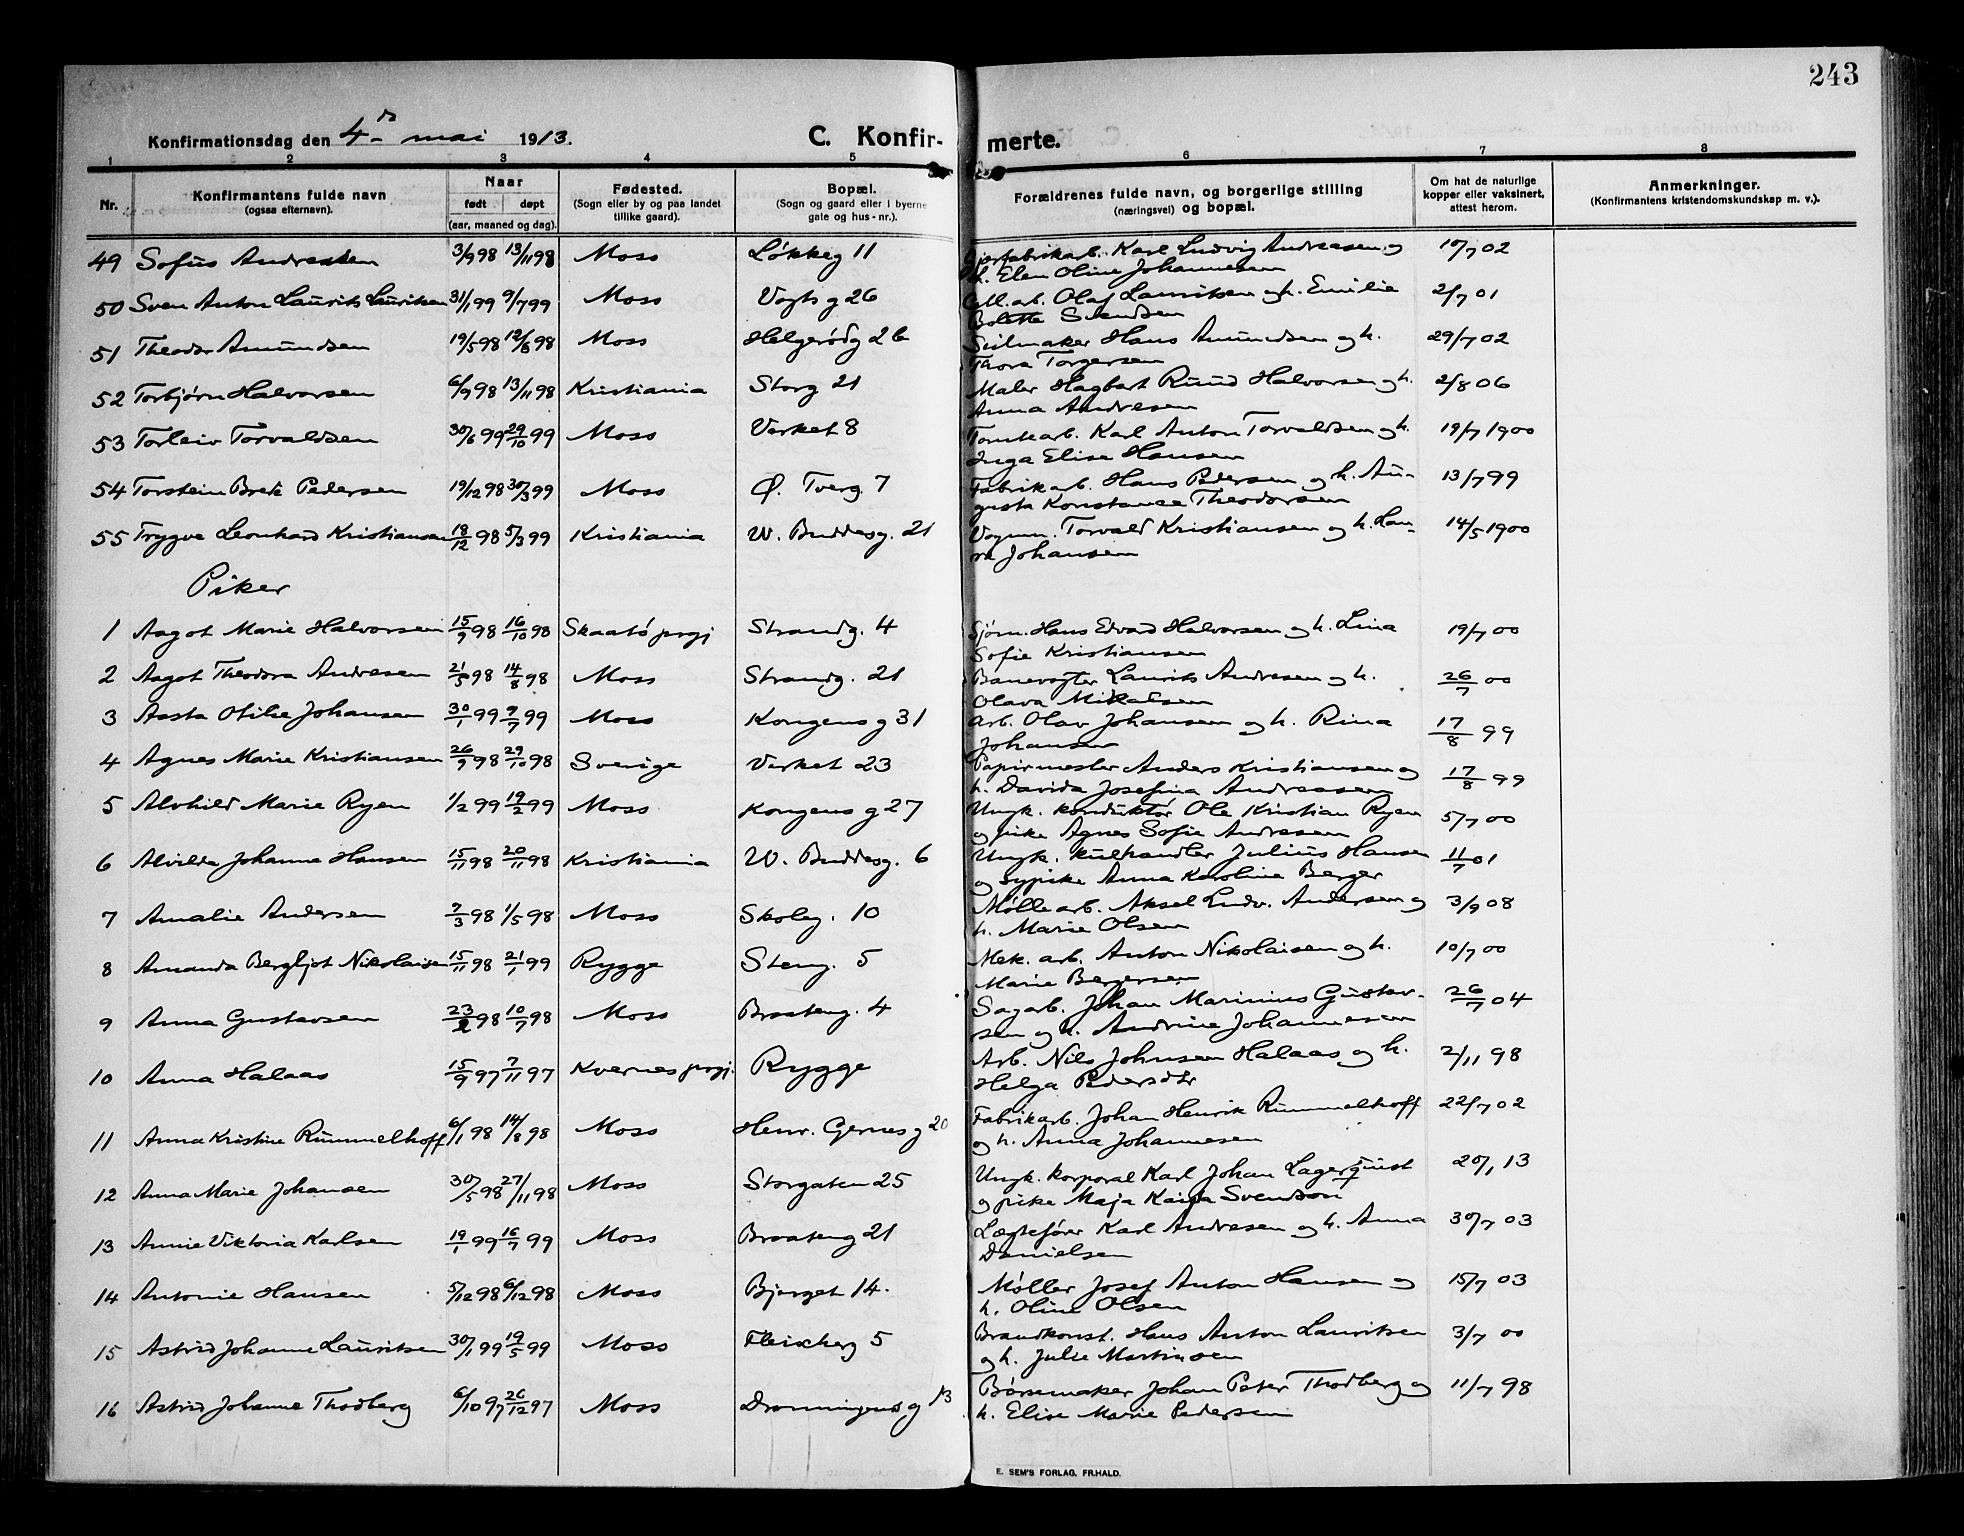 243
Konfirmationsdag den 4de mai 1913.
C. Konfirmerte.
1 2 3 4 5 6 7 8
Nr. Konfirmantens fulde navn (ogsaa efternavn). Naar født døpt (aar, maaned og dag). Fødested. (Sogn eller by og paa landet tillike gaard). Bopæl. (Sogn og gaard eller i byerne gate og hus-nr.). Forældrenes fulde navn, og borgerlige stilling (næringsvei) og bopæl. Om hat de naturlige kopper eller vaksinert, attest herom. Anmerkninger. (Konfirmantens kristendomskundskap m. v.).
49 Sofus Andreasen 3/9 98 13/11 98 Moss Løkkeg 11 Karl Ludvig Andreasen og 10/7 02
h. Elen Oline Johannesen
50 Sven Anton Laurits Lauritsen 31/1 99 9/7 99 Moss Vogts g 26 Cell. arb. Olaf Lauritsen og h. Emilie 2/7 01
Bolette Svendsen
51 Theodor Amundsen 19/5 98 12/6 98 Moss Helgerødg 26 Seilmaker Hans Amundsen og h. 29/7 02
Thora Torgersen
52 Torbjørn Halvorsen 6/9 98 13/11 98 Kristiania Storg 21 Maler Hagbart Ruud Halvorsen og h. 2/8 06
Anna Andresen
53 Torleiv Torvaldsen 30/6 99 29/10 99 Moss Verket 8 Tomtearb. Karl Anton Torvaldsen og h. 19/7 1900
Inga Elise Hansen
54 Torstein Brek Pedersen 19/12 98 30/3 99 Moss Ø. Tverg. 7 Fabrikarb. Hans Pedersen og h. Au-
gusta Konstance Theodorsen 13/7 99
55 Trygve Leonhard Kristiansen 18/12 98 5/3 99 Kristiania W. Buddesg. 21 Vognm. Torvald Kristiansen og h. Lau- 14/5 1900
ra Johansen
Piker
1 Aagot Marie Halvorsen 15/9 98 16/10 98 Skaatø prgj Strandg. 4 Sjøm. Hans Edvard Halvorsen og h. Lina 19/7 00
Sofie Kristiansen
2 Aagot Theodora Andresen 21/5 98 14/8 98 Moss Strandg. 21 Banevogter Laurits Andresen og h. 26/7 00
Olava Mikalsen
3 Aasta Otilie Johansen 30/1 99 9/7 99 Moss Kongens g 31 Arb. Olav Johansen og h. Rina 17/8 99
Johansen
4 Agnes Marie Kristiansen 26/9 98 29/10 98 Sverige Verket 23 Papirmester Anders Kristiansen og 17/8 99
h. Davida Josefina Andreasen
5 Alvhild Marie Ryen 1/2 99 19/2 99 Moss Kongens g 27 Ungk. konduktør Ole Kristian Ryen 5/7 00
og pike Agnes Sofie Andresen
6 Alvilda Johanna Hansen 15/11 98 20/11 98 Kristiania W. Buddesg. 6 Ungk. kulhandler Julius Hansen 11/7 01
og sypike Anna Karoline Berger
7 Amalie Andersen 7/3 98 1/5 98 Moss Skoleg. 10 Møllearb. Aksel Ludv. Andersen og 3/9 08
h. Marie Olsen
8 Amanda Bergljot Nikolaisen 15/11 98 21/1 99 Rygge Steng. 5 Mek. arb. Anton Nikolaisen og h. 10/7 00
Marie Bergersen
9 Anna Gustavsen 23/2 98 10/7 98 Moss Braateng. 4 Sagarb. Johan Marinius Gustav- 26/7 04
sen og h. Andrine Johannesen
10 Anna Halaas 15/9 97 7/11 97 Kvernes prgj. Rygge Arb. Nils Johnsen Halaas og h. 2/11 98
Helga Pedersdtr
11 Anna Kristine Rummelhoff 6/1 98 14/8 98 Moss Henr. Gernes g 20 Fabrikarb. Johan Henrik Rummelhoff 22/7 02
og h. Anna Johannesen
12 Anna Marie Johansen 30/5 98 27/11 98 Moss Storgaten 25 Ungk. korporal Karl Johan Lagerquist 20/1 13
og pike Maja Kaisa Svenson
13 Annie Viktoria Karlsen 19/1 99 16/7 99 Moss Braateng 21 Lægtefører Karl Andresen og h. Anna 30/7 03
Danielsen
14 Antonie Hansen 5/12 98 6/12 98 Moss Bjerget 14. Møller Josef Anton Hansen og 15/7 03
h. Oline Olsen
15 Astrid Johanne Lauritsen 30/1 99 19/5 99 Moss Fleischerg 5 Brandkonst. Hans Anton Lauritsen 3/7 00
og h. Julie Martinsen
16 Astrid Johanne Thodberg 6/10 97 26/12 97 Moss Dronningens g 13 Børsemaker Johan Peter Thodberg og 11/7 98
h. Elise Marie Pedersen
E. SEM'S FORLAG, FR.HALD.